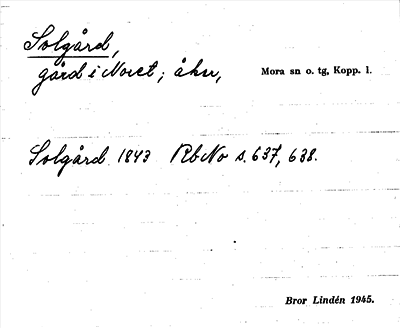 Solgård,
gård i Noret; åker,
Mora sn o. tg, Kopp. l.
Solgård 1843 RbNo s. 637, 638.
Bror Lindén 1945.